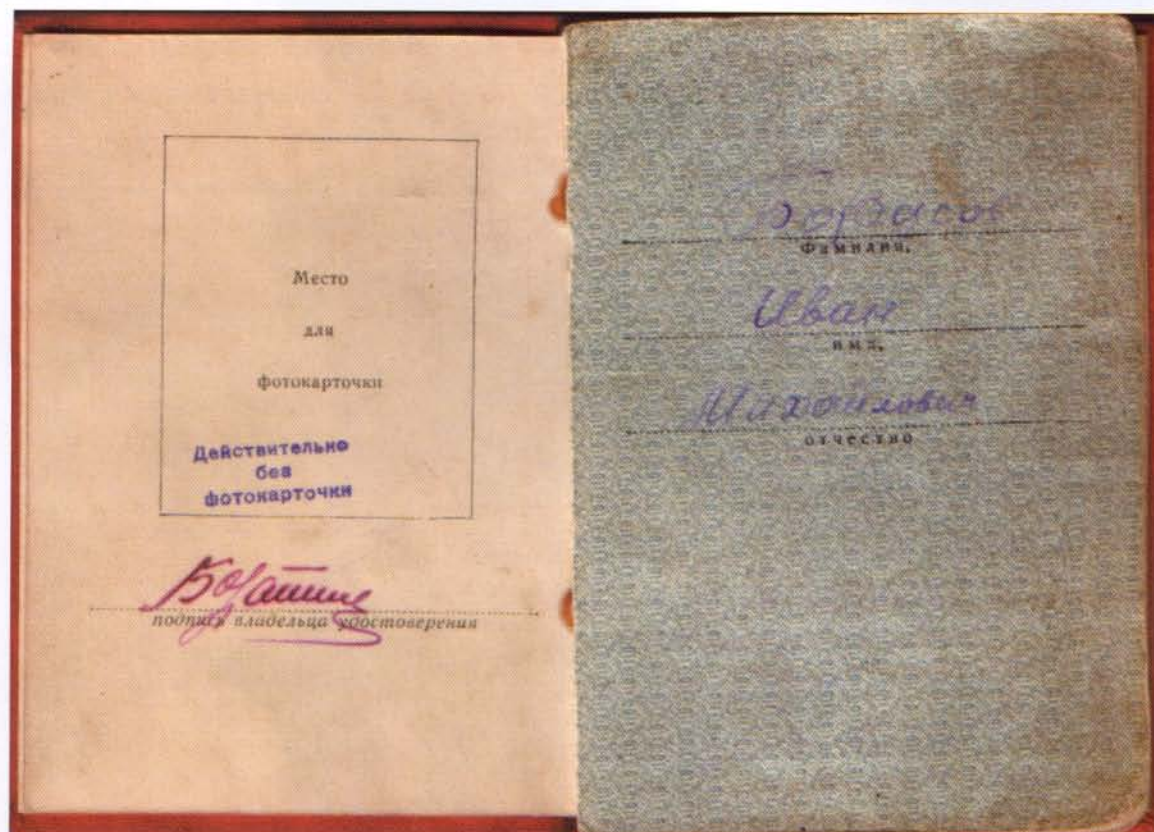 Место
для
фотокарточки
Действительно
без
фотокарточки
подпись владельца удостоверения
фамилия,
Иван
имя,
Михайлович
отчество